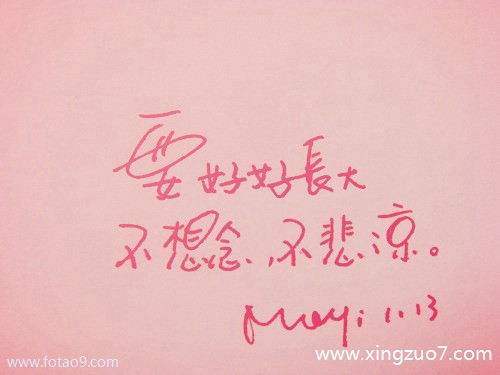 要好好長大
不想念，不悲涼。
11.13
www.fotao9.com
www.xingzuo7.com